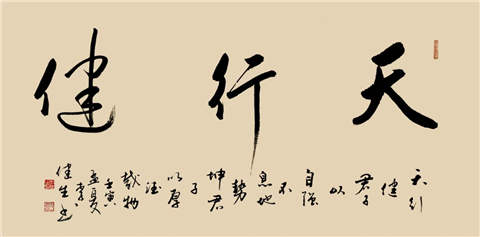 天行健
天行
健
君子
以
自强
不
息地
勢
坤君
子
以厚
德
載物
壬寅
孟夏
李
健生书